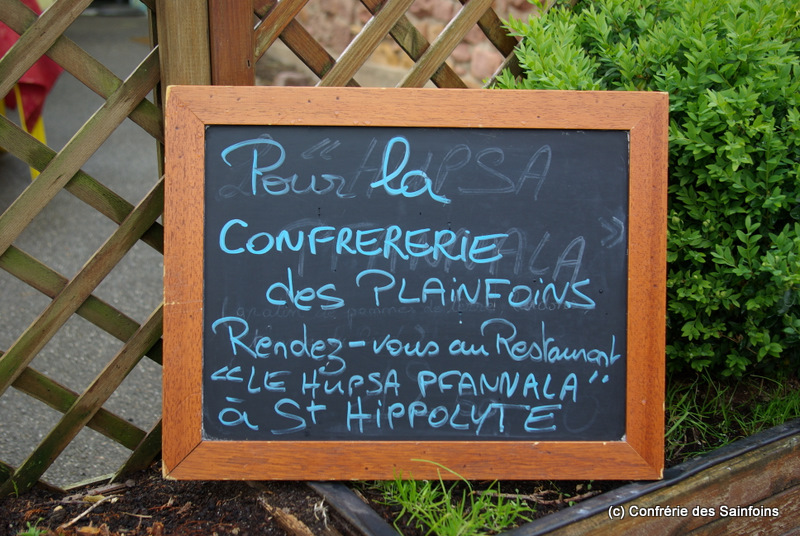 Pour la
CONFRERERIE
des PLAINFOINS
Rendez-vous au Restaurant
"LE HUPSA PFANNALA"
à St HIPPOLYTE
(c) Confrérie des Sainfoins